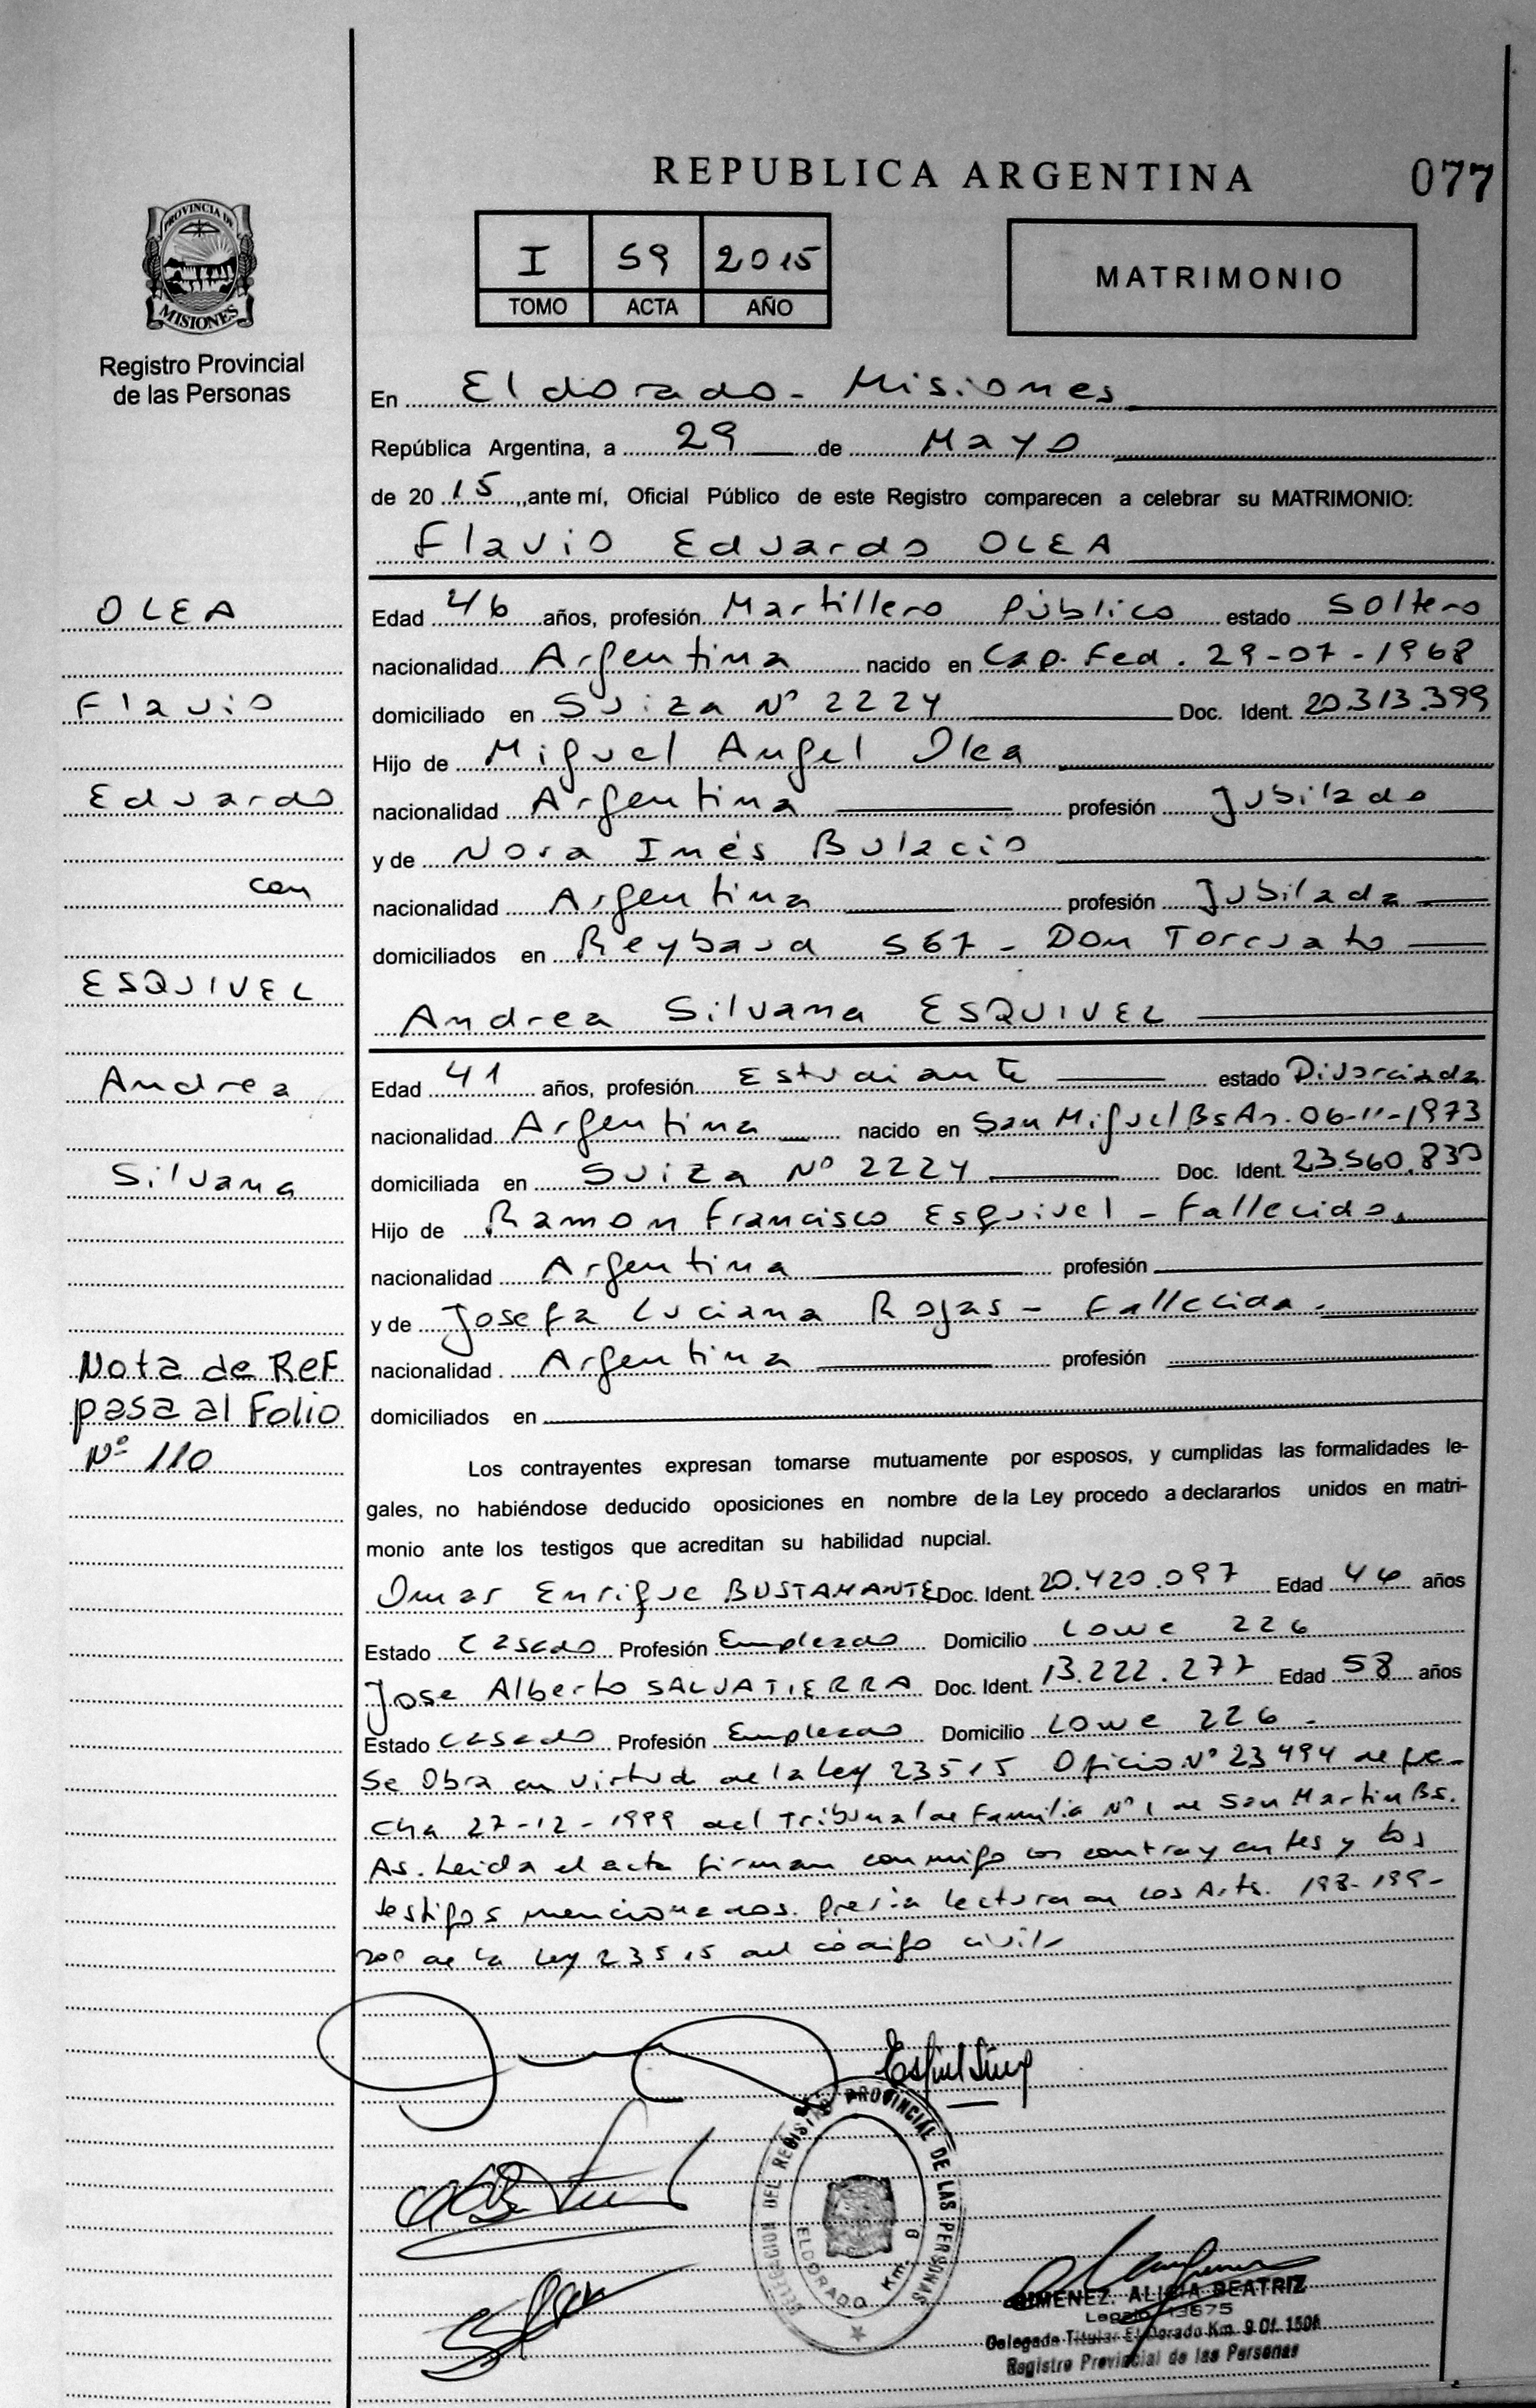 REPUBLICA ARGENTINA
077
PROVINCIA DE
MISIONES
Registro Provincial
de las Personas
I 59 2015
TOMO ACTA AÑO
MATRIMONIO
En Eldorado - Misiones
República Argentina, a 29 de Mayo
de 2015, ante mí, Oficial Público de este Registro comparecen a celebrar su MATRIMONIO:
Flavio Eduardo OLEA
OLEA
Flavio
Eduardo
con
ESQUIVEL
Andrea
Silvana
Nota de Ref
pasa al Folio
Nº 110
Edad 46 años, profesión Martillero Público estado Soltero
nacionalidad Argentina nacido en Cap. Fed. 29-07-1968
domiciliado en Suiza Nº 2224 Doc. Ident. 20.313.399
Hijo de Miguel Angel Olea
nacionalidad Argentina profesión Jubilado
y de Nora Inés Bulacio
nacionalidad Argentina profesión Jubilada
domiciliados en Reybaud 567 - Don Torcuato
Andrea Silvana ESQUIVEL
Edad 41 años, profesión Estudiante estado Divorciada
nacionalidad Argentina nacido en San Miguel Bs As. 06-11-1973
domiciliada en Suiza Nº 2224 Doc. Ident. 23.560.830
Hijo de Ramon Francisco Esquivel - Fallecido.
nacionalidad Argentina profesión
y de Josefa Luciana Rojas - Fallecida.
nacionalidad Argentina profesión
domiciliados en
Los contrayentes expresan tomarse mutuamente por esposos, y cumplidas las formalidades le-
gales, no habiéndose deducido oposiciones en nombre de la Ley procedo a declararlos unidos en matri-
monio ante los testigos que acreditan su habilidad nupcial.
Omar Enrique BUSTAMANTE Doc. Ident. 20.420.097 Edad 46 años
Estado Casado Profesión Empleado Domicilio Lowe 226
Jose Alberto SALVATIERRA Doc. Ident. 13.222.277 Edad 58 años
Estado Casado Profesión Empleado Domicilio Lowe 226 -
Se Obra en virtud de la Ley 23515 Oficio Nº 23494 de fe-
cha 27-12-1999 del Tribunal de Familia Nº 1 de San Martin Bs.
As. Leida el acta firman conmigo los contrayentes y los
testigos mencionados. Previa lectura de los Arts. 198-199-
200 de la Ley 23515 del codigo civil
DELEGACION DEL REGISTRO PROVINCIAL DE LAS PERSONAS
ELDORADO Km. 9
GIMENEZ, ALICIA BEATRIZ
Legajo 13675
Delegada Titular El Dorado Km. 9 Of. 1506
Registro Provincial de las Personas